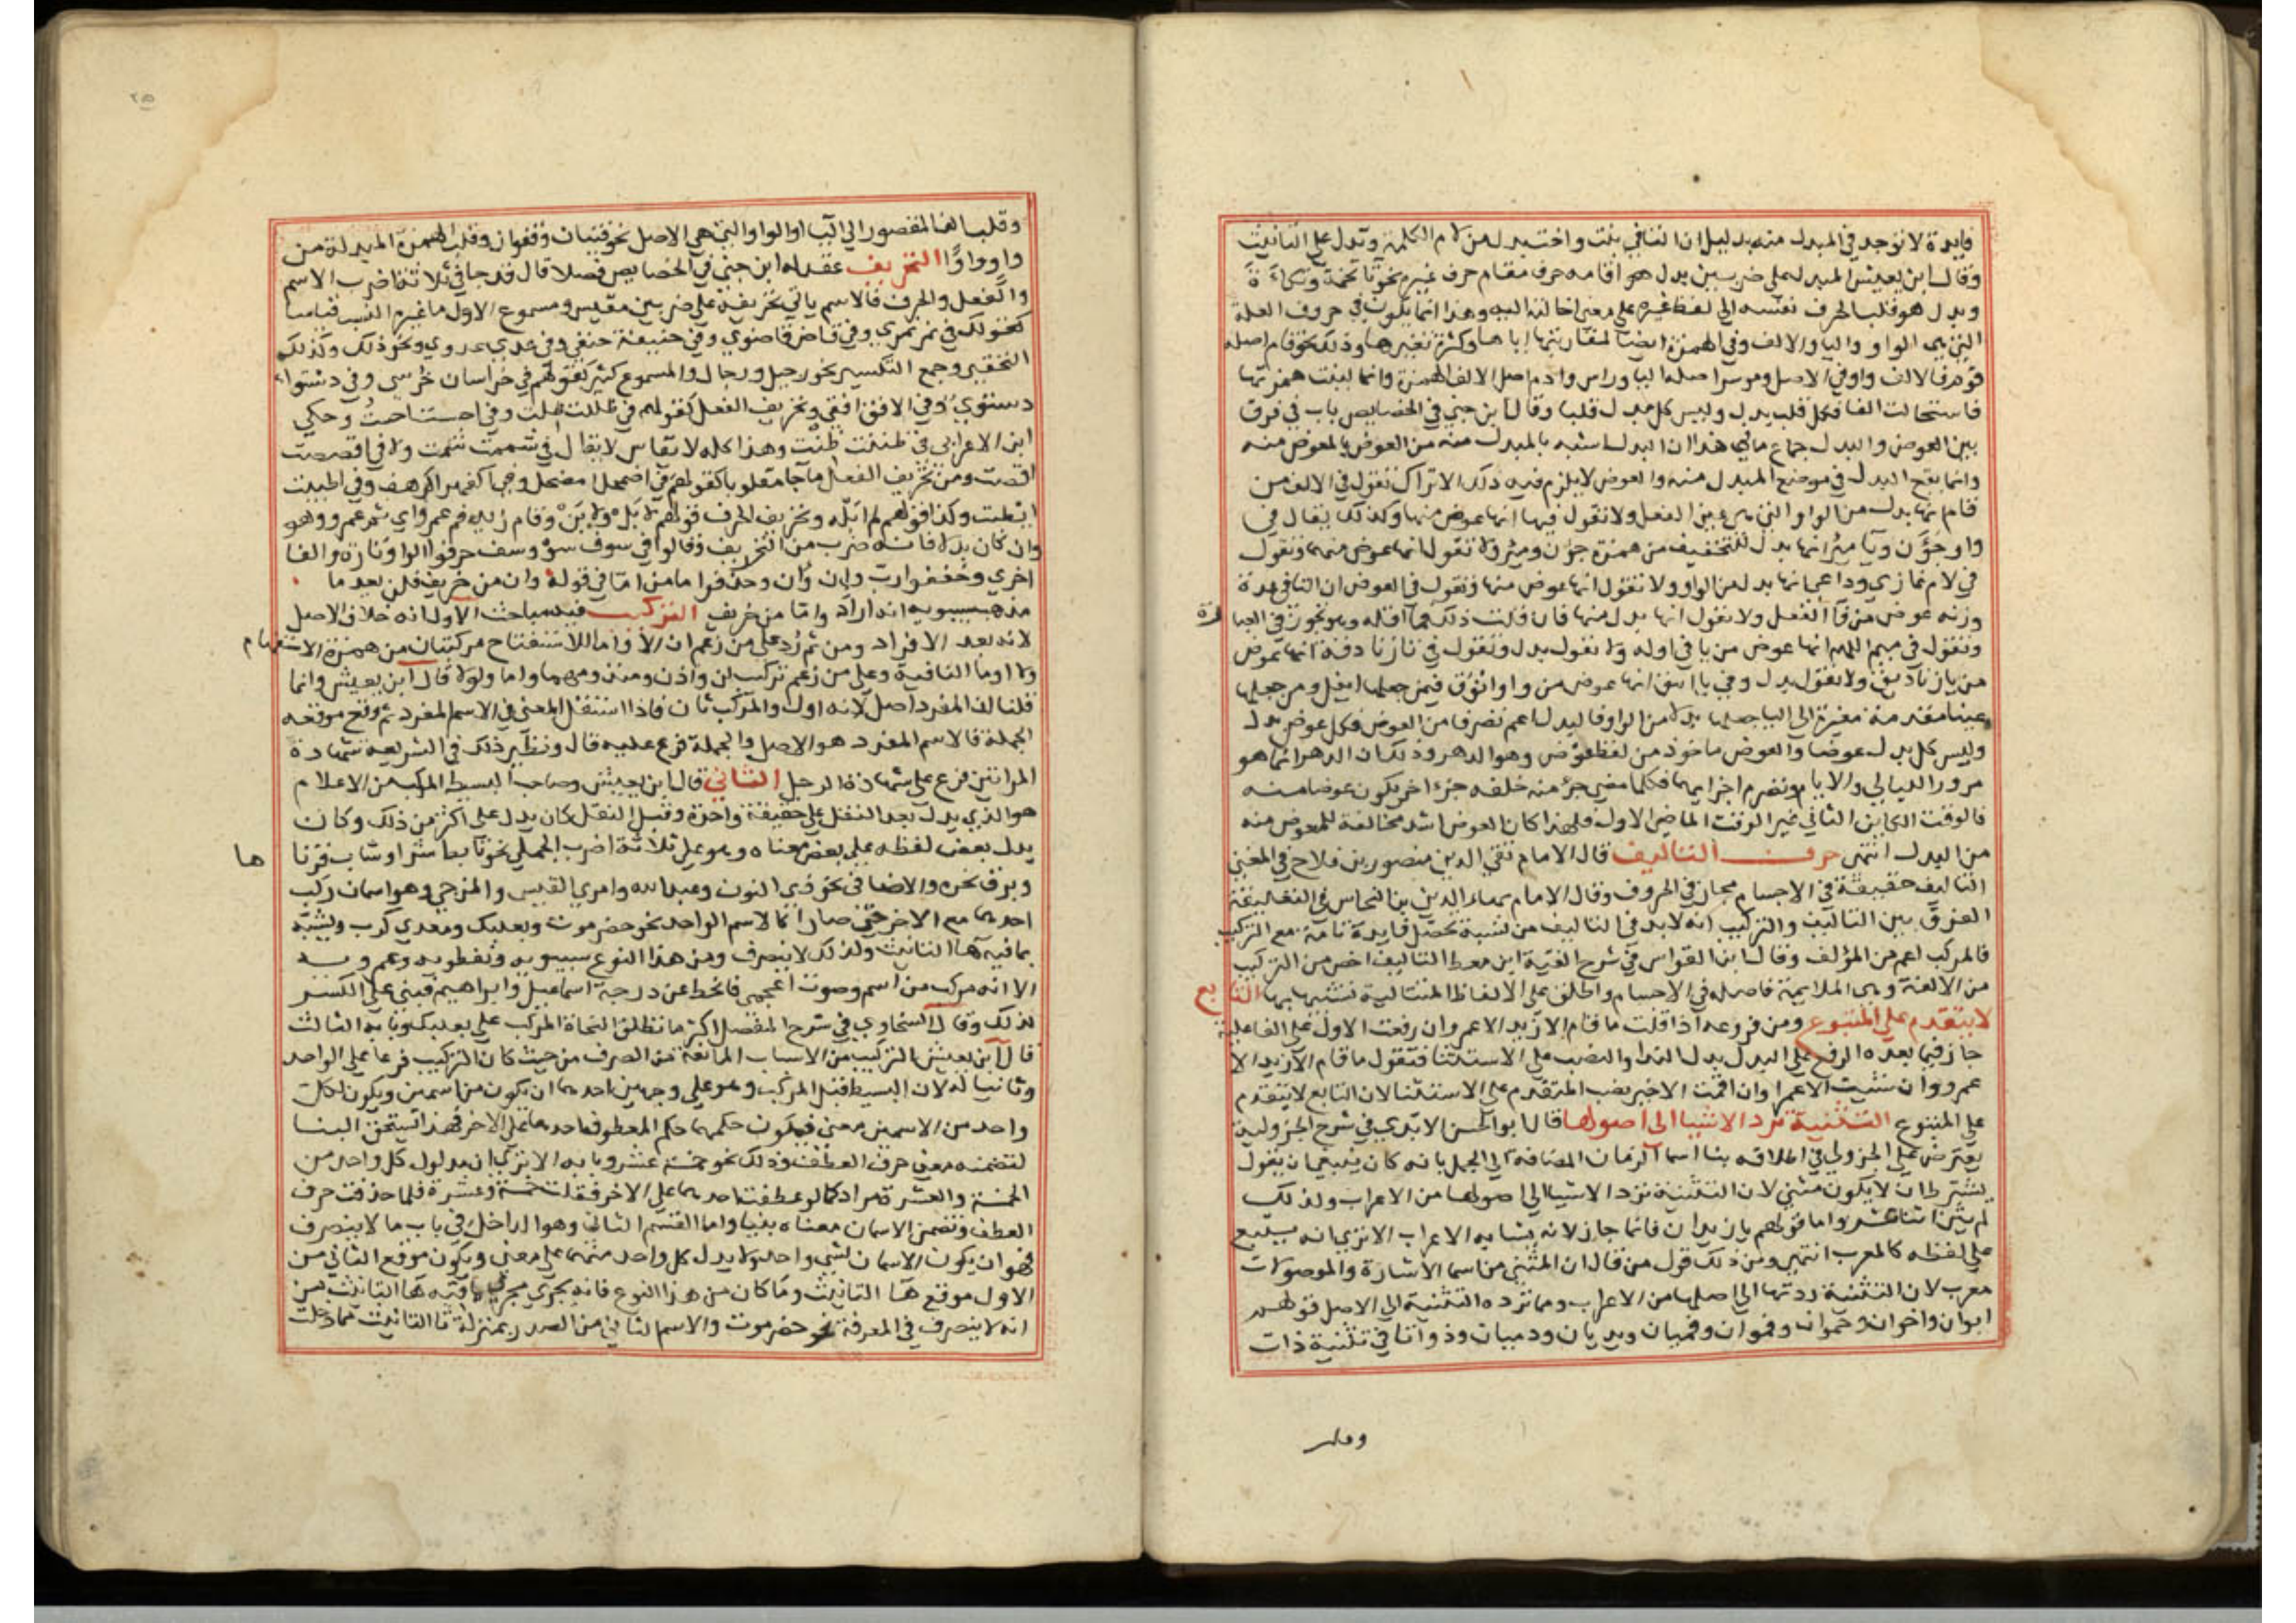 فايدة لا توجد في المبدل منه بدليل ان التا في بنت واخت بدل من لام الكلمة وتدل على التانيث
وقال ابن يعيش البدل على ضربين بدل هو اقامة حرف مقام حرف غيره نحو تا تخمة وتكاة
وبدل هو قلب الحرف نفسه الى لفظ غيره على معنى احالته اليه وهذا انما يكون في حروف العلة
التي هي الواو واليا والالف وفي الهمزة ايضا لمقاربتها اياها وكثرة تغييرها وذلك نحو قام اصله
قوم فالالف واو في الاصل وموسر اصله اليا وراس وادم اصل الالف الهمزة وانما لينت همزتها
فاستحالت الفا فكل قلب بدل وليس كل بدل قلبا وقال ابن جني في الخصايص باب في فرق
بين العوض والبدل جماع ما في هذا ان البدل اشبه بالمبدل منه من العوض بالمعوض منه
وانما يقع البدل في موضع المبدل منه والعوض لا يلزم فيه ذلك الا تراك تقول في الالف من
قام انها بدل من الواو التي هي عين الفعل ولا تقول فيها انها عوض منها وكذلك يقال في
واو جؤن ويا مئر انها بدل للتخفيف من همزة جؤن ومئر ولا تقول انها عوض منهما وتقول
في لام غازي وداعي انها بدل من الواو ولا تقول انها عوض منها وتقول في العوض ان التا في عدة
وزنة عوض من فا الفعل ولا تقول انها بدل منها فان قلت ذلك فما اقله وهو تجوز في العبا رة
وتقول في ميم اللهم انها عوض من يا في اوله ولا تقول بدل وتقول في تا زنادقة انها عوض
من يا زناديق ولا تقول بدل وفي يا اينق انها عوض من واو انوق فيمن جعلها ايفل ومن جعلها
عينا مقدمة مغيرة الى اليا جعلها بدلا من الواو فالبدل اعم تصرفا من العوض فكل عوض بدل
وليس كل بدل عوضا والعوض ماخوذ من لفظ عوض وهو الدهر وذلك ان الدهر انما هو
مرور الليالي والايام وتصرم اجزايهما فكلما مضى جزء منه خلفه جزء اخر يكون عوضا منه
فالوقت الكاين الثاني غير الوقت الماضي الاول ولهذا كان العوض اشد مخالفة للمعوض منه
من البدل انتهى حرف التاليف قال الامام تقي الدين منصور بن فلاح في المغني
التاليف حقيقة في الاجسام مجاز في الحروف وقال الامام بهاء الدين بن النحاس في التعليقة
الفرق بين التاليف والتركيب انه لا بد في التاليف من نسبة تحصل فايدة تامة مع التركيب
فالمركب اعم من المؤلف وقال ابن القواس في شرح الفية ابن معط التاليف اخص من التركيب
من الالفة وهي الملايمة فاصله في الاجسام واطلق على الالفاظ المتتالية تشبيها بها التابع
لا يتقدم على المتبوع ومن فروعه اذا قلت ما قام الا زيد الا عمر وان رفعت الاول على الفاعلية
جاز فيما بعده الرفع على البدل بدل البدا والنصب على الاستثنا فتقول ما قام الا زيد الا
عمرو وان شئت الا عمرا وان اقمت الاخير نصب المتقدم على الاستثنا لان التابع لا يتقدم
على المتبوع التثنية ترد الاشيا الى اصولها قال ابو الحسن الابدي في شرح الجزولية
يعترض على الجزولي في اطلاقه بنا اسما الزمان المضافة الى الجمل بانه كان ينبغي ان يقول
بشرط ان لا يكون مثنى لان التثنية ترد الاشيا الى اصولها من الاعراب ولذلك
لم يبن اثنا عشر واما قولهم يا زيدان فانما جاز لانه بنا يشابه الاعراب الا ترى انه يتبع
على لفظه كالمعرب انتهى ومن ذلك قول من قال ان المثنى من اسما الاشارة والموصولات
معرب لان التثنية ردتها الى اصلها من الاعراب ومما ترده التثنية الى الاصل قولهم
ابوان واخوان وحموان وفموان وفميان ويديان ودميان وذواتا في تثنية ذات
وقلب
وقلب الف المقصور الى اليا او الواو التي هي الاصل نحو فتيان وقفوان وقلب الهمزة المبدلة من
واو واوا التحريف عقد له ابن جني في الخصايص فصلا قال قد جا في ثلاثة اضرب الاسم
والفعل والحرف فالاسم ياتي تحريفه على ضربين مقيس ومسموع الاول ما غيره النسب قياسا
كقولك في نمر نمري وفي قاض قاضوي وفي حنيفة حنفي وفي عدي عدوي ونحو ذلك وكذلك
التحقير وجمع التكسير نحو رجيل ورجال والمسموع كثير كقولهم في خراسان خرسي وفي دستواء
دستوي وفي الافق افقي وتحريف الفعل كقولهم في ظللت ظلت وفي احسست احست وحكى
ابن الاعرابي في ظننت ظنت وهذا كله لا يقاس لا يقال في شممت شمت ولا في اقصصت
اقصت ومن تحريف الفعل ما جا مقلوبا كقولهم في اضمحل امضحل وفي اكفهر اكرهف وفي اطيبت
ايطبت وكذا قولهم لم ابله وتحريف الحرف قولهم لا بل ولا بن وقام زيد فم عمرو اي ثم عمرو وهو
وان كان بدلا فانه ضرب من التحريف وقالوا في سوف سو وسف حرفوا الواو تارة والفا
اخرى وخففوا رب وان وان وحذفوا ما من اما في قوله وان من خريف فلن يعد ما
مذهب سيبويه انه اراد واما من خريف التركيب فيه مباحث الاول انه خلاف الاصل
لانه بعد الافراد ومن ثم رد على من زعم ان الا واما للاستفتاح مركبتان من همزة الاستفهام
ولا وما النافية وعلى من زعم تركيب لن واذن ومنذ ومهما واما ولولا قال ابن يعيش وانما
قلنا ان المفرد اصل لانه اول والمركب ثان فاذا استقل المعنى في الاسم المفرد ثم وقع موقعه
الجملة فالاسم المفرد هو الاصل والجملة فرع عليه قال ونظير ذلك في الشريعة شهادة
المراتين فرع على شهادة الرجل الثاني قال ابن يعيش وصاحب البسيط المركب من الاعلام
هو الذي يدل بعد النقل على حقيقة واحدة وقبل النقل كان يدل على اكثر من ذلك وكان
يدل بعض لفظه على بعض معناه وهو على ثلاثة اضرب الجملي نحو تابط شرا وشاب قرنا ها
وبرق نحره والاضافي نحو ذي النون وعبد الله وامري القيس والمزجي وهو اسمان ركب
احدهما مع الاخر حتى صارا كالاسم الواحد نحو حضرموت وبعلبك ومعدي كرب ويشبه
بما فيه ها التانيث ولذلك لا ينصرف ومن هذا النوع سيبويه ونفطويه وعمرويه
الا انه مركب من اسم وصوت اعجمي فانحط عن درجة اسماعيل وابراهيم فبني على الكسر
لذلك وقال السخاوي في شرح المفصل اكثر ما تطلق النحاة المركب على بعلبك وبابه الثالث
قال ابن يعيش التركيب من الاسباب المانعة من الصرف من حيث كان التركيب فرعا على الواحد
وثانيا له لان البسيط قبل المركب وهو على وجهين احدهما ان يكون من اسمين ويكون لكل
واحد من الاسمين معنى فيكون حكمهما حكم المعطوف احدهما على الاخر فهذا يستحق البنا
لتضمنه معنى حرف العطف وذلك نحو خمسة عشر وبابه الا ترى ان مدلول كل واحد من
الخمسة والعشرة مراد كما لو عطفت احدهما على الاخر فقلت خمسة وعشرة فلما حذفت حرف
العطف وتضمن الاسمان معناه بنيا واما القسم الثاني وهو الداخل في باب ما لا ينصرف
فهو ان يكون الاسمان لشي واحد ولا يدل كل واحد منهما على معنى ويكون موقع الثاني من
الاول موقع ها التانيث وما كان من هذا النوع فانه يجري مجرى ما فيه ها التانيث من
انه لا ينصرف في المعرفة نحو حضرموت والاسم الثاني من الصدر بمنزلة تا التانيث مما دخلت